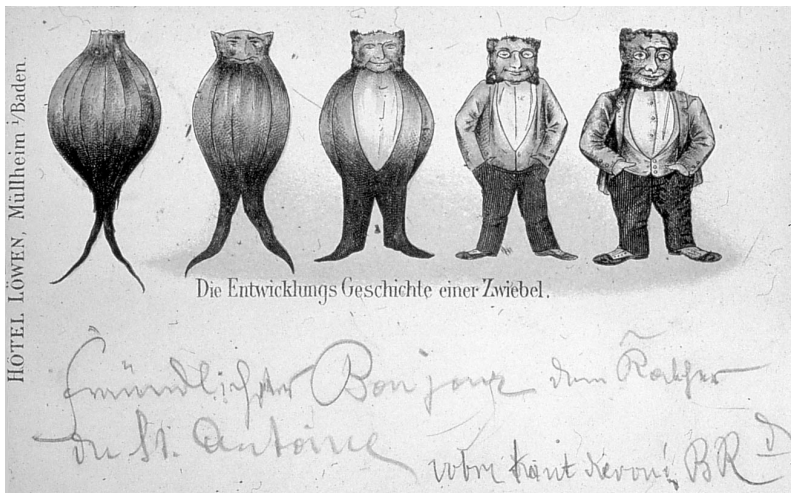 HÔTEL LÖWEN, Müllheim i/Baden.
Die Entwicklungs Geschichte einer Zwiebel.
Freundlichster Bonjour dem
du St. Antoine
BR